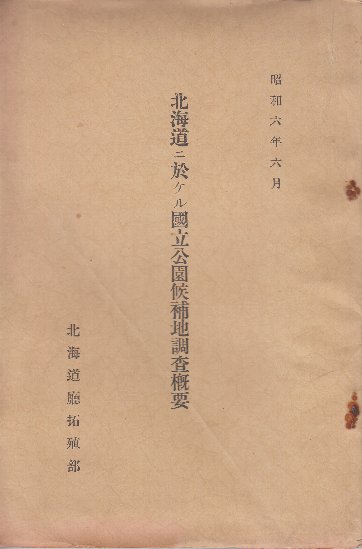 昭和六年六月
北海道ニ於ケル國立公園候補地調査槪要
北海道廳拓殖部